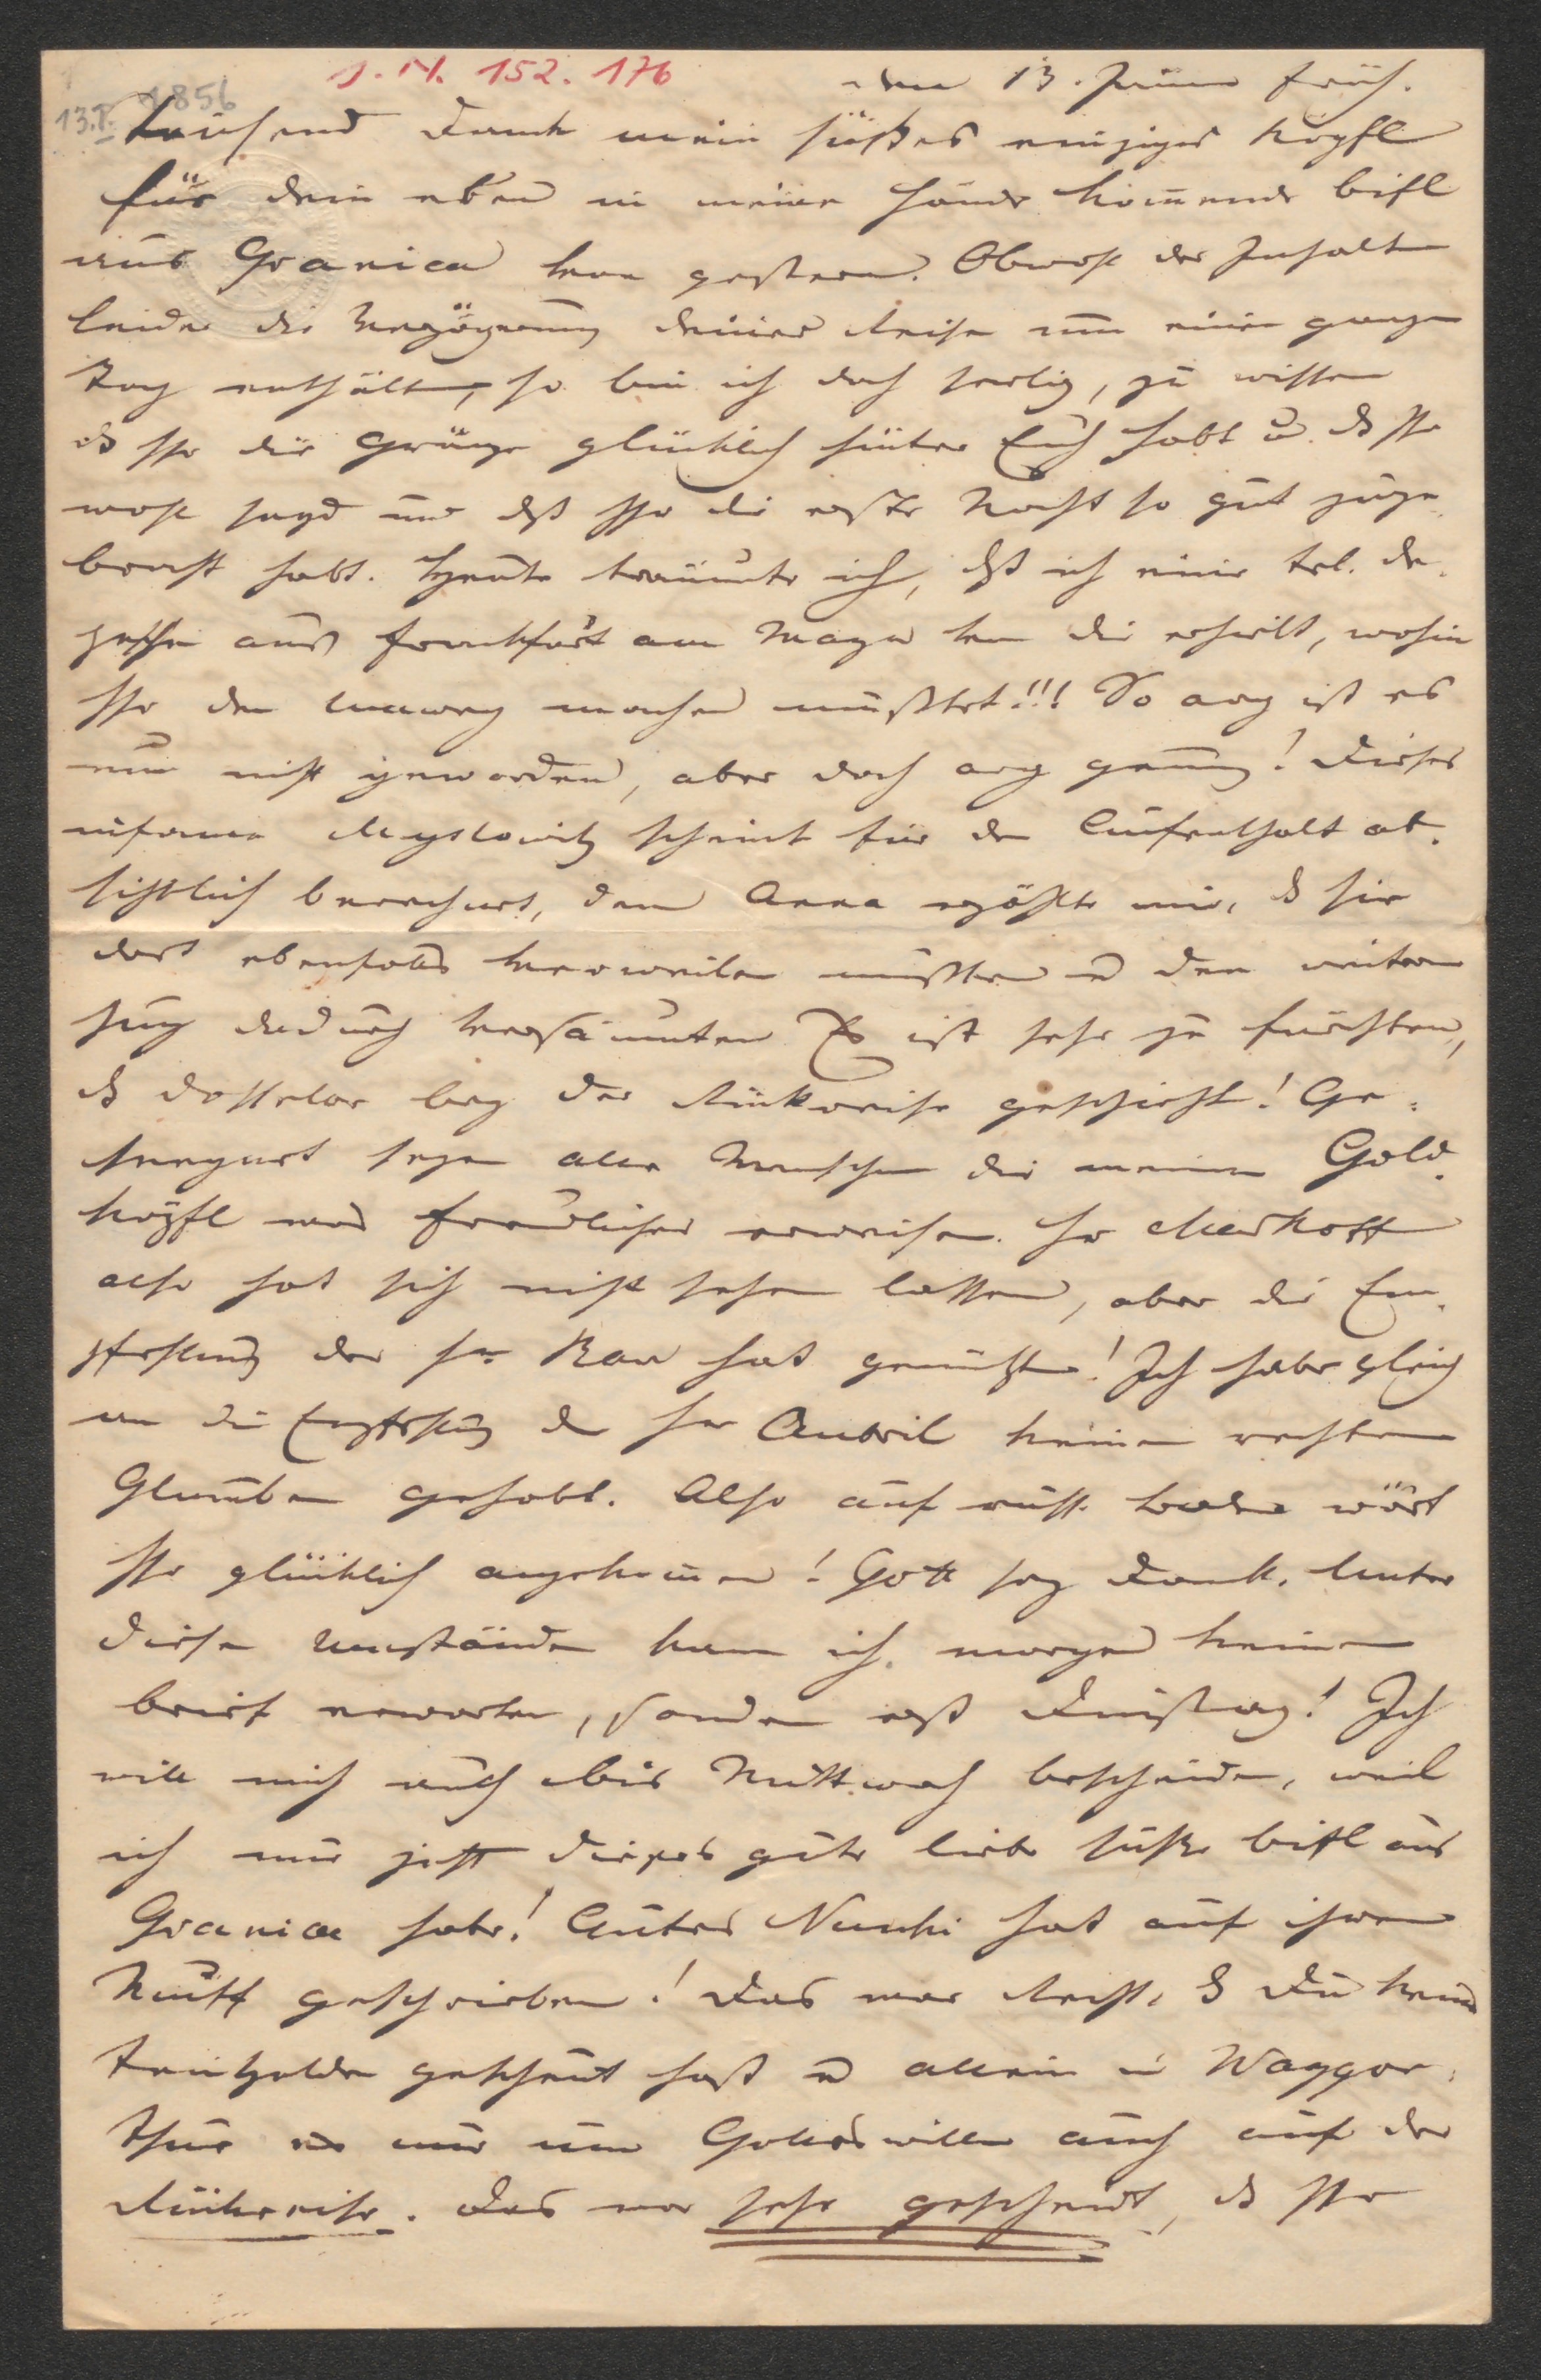 J. N. 152.176
1856
13.I.
den 13. Jäner früh.
Tausend Dank mein süßes einziges Köpfl
für dein eben in meine Hände kom̄ende bißl
aus Granica von gestern. Obwohl der Inhalt
leider die Verzögerung deiner Reise um einen ganzen
Tag enthält, so bin ich doch seelig, zu wissen
dß Ihr die Gränze glücklich hinter Euch habt u. dß Ihr
wohl seyd und dß Ihr die erste Nacht so gut zuge-
bracht habt. Heute träumte ich, dß ich eine tel. De-
pesche aus Frankfurt am Mayn von dir erhielt, wohin
Ihr den Umweg machen mußtet!!! So arg ist es
nun nicht geworden, aber doch arg genug! Dieses
infame Myslowitz scheint für den Aufenthalt ab-
sichtlich berechnet, denn Anna erzählte mir, dß sie
dort ebenfalls verweilen mußten u den weitern
Zug dadurch versäumten Es ist sehr zu fürchten,
dß dasselbe bey der Rückreise geschieht! Ge-
segnet seyen alle Menschen die meinem Gold-
köpfl was freundliches erweisen. Hr Markoff
also hat sich nicht sehen lassen, aber die Em-
pfehlung der Fr. Rau hat genützt! Ich habe gleich
an die Empfehlung der Fr Aubril keinen rechten
Glauben gehabt. Also auf russ. Boden wärt
Ihr glücklich angekom̄en! Gott sey Dank. Unter
diesen Umständen kann ich morgen keinen
Brief erwarten, sondern erst Dienstag! Ich
will mich auch bis Mittwoch bescheiden, weil
ich nur jetzt dieses gute liebe süße bißl aus
Granica habe! Gutes Nunki hat auf ihrem
Muff geschrieben! Das war Recht, dß du keine
gescheut hast u allein in Waggon.
Thue es nur um Gotteswillen auch auf der
Rückreise. Das war sehr gescheidt, dß Ihr